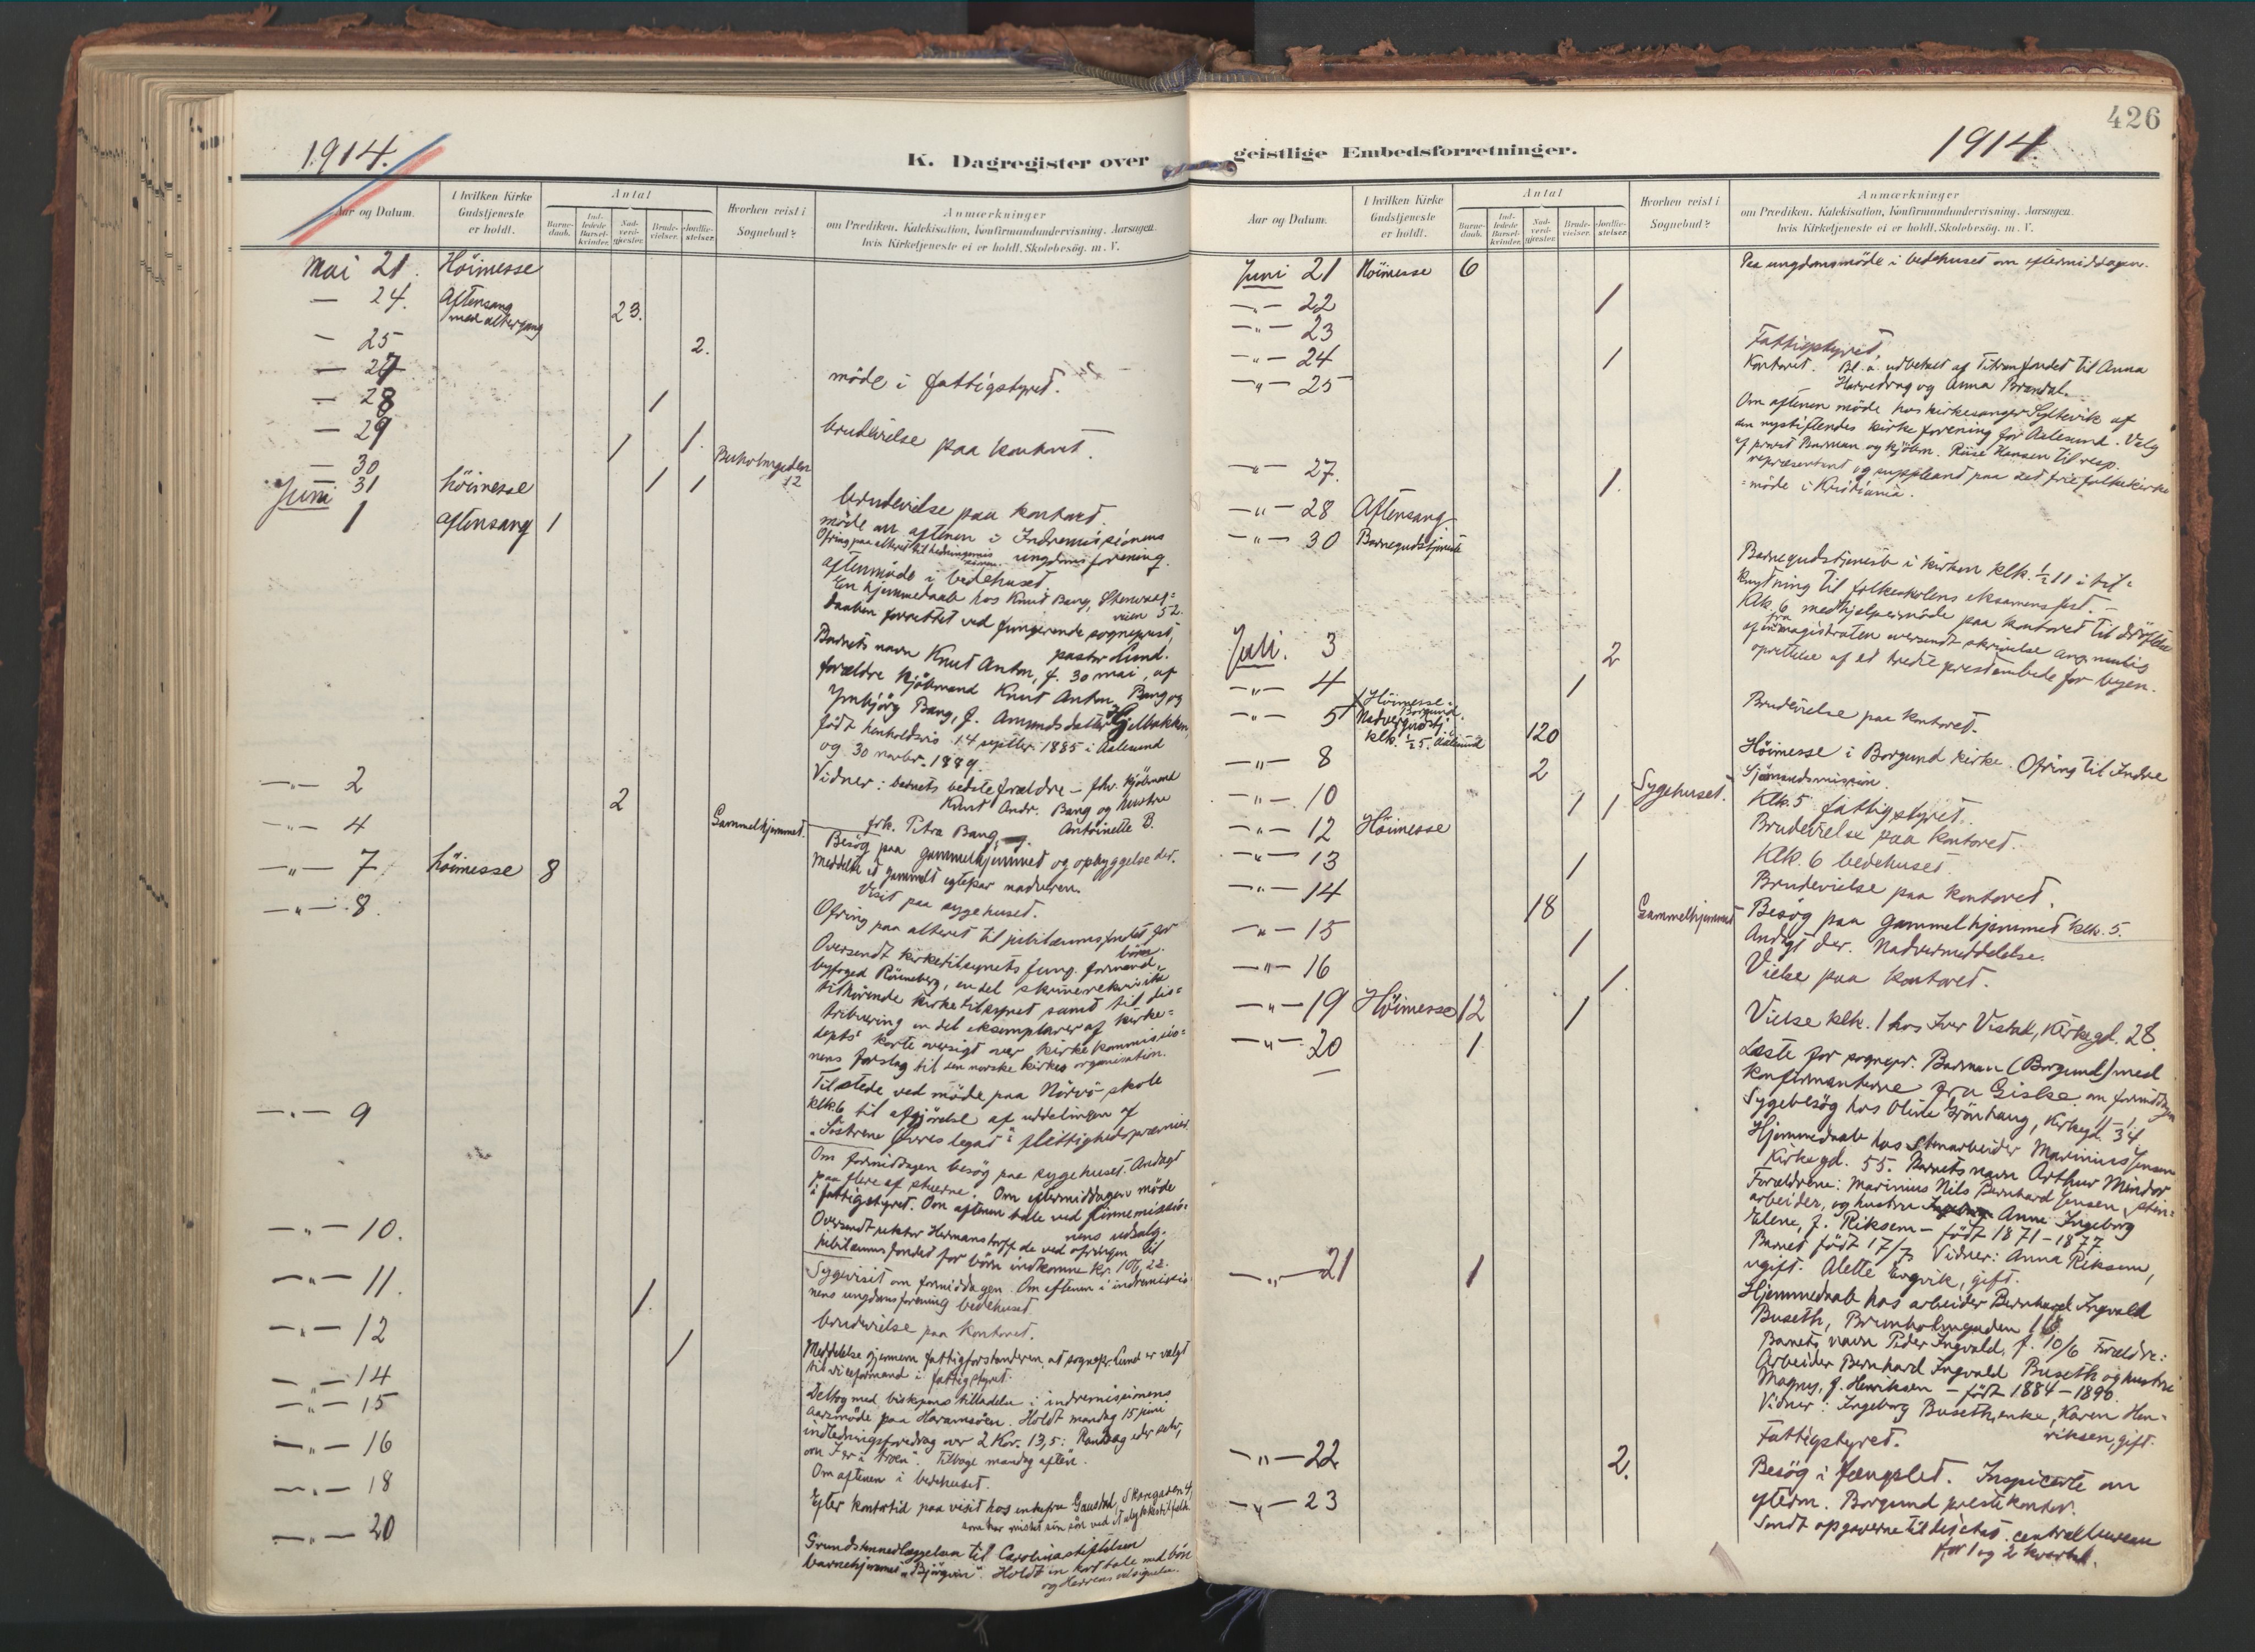 1914.
K. Dagregister over
Aar og Datum.
I hvilken Kirke
Gudstjeneste
er holdt.
Antal
Barne-
daab.
Ind-
ledede
Barsel-
kvinder.
Nad-
verd-
gjester.
Brude-
vielser.
Jordfæ-
stelser.
Hvorhen reist i
Sognebud?
Anmærkninger
om Prædiken, Katekisation, Konfirmandundervisning. Aarsagen
hvis Kirketjeneste ei er holdt, Skolebesøg. m. V.
Mai 21. Höimesse
— 24. Aftensang
med altergang 23.
— 25 2.
— 27 möde i fattigstyret.
— 28 1
— 29 1 1. brudevielse paa kontoret.
— 30
12
31 höimesse 1 1
Juni 1 aftensang 1
brudevielse paa kontoret.
möde om aftenen i Indremissionens
ungdomsforening.
aftenmöde i bedehuset.
En hjemmedaab hos Knut Bang,
veien 52.
Daaben forrettet ved fungerende sogneprest,
pastor Lund.
Barnets navn Knut Anton, f. 30 mai, af
forældre kjöbmand Knut Anton Bang og
Ynbjörg Bang, f. Amundsdatter
födt henholdsvis 14 septbr. 1885 i Aalesund
og 30 novbr. 1889.
Vidner: barnets bedsteforældre – fhv. kjöbmand
Knut Andr. Bang og hustru
Antoinette B.
frk. Petra Bang,
—"— 2
—"— 4 2 Gammelhjemmet.
Besög paa gammelhjemmet og opbyggelse der.
Meddelte et gammelt egtepar nadveren.
Visit paa sygehuset.
—"— 7 höimesse 8
Ofring paa alteret til jubilæumsfondet for
börn.
—"— 8.
Oversendt kirketilsynets fung. formand,
byfoged Rönneberg, en del
tilhörende kirketilsynet samt til dis=
tribuering en del eksemplarer af kirke=
depts korte oversigt over kirkekommissio=
nens forslag til den norske kirkes organisation.
Tilstede ved möde paa Nörvö skole
klk 6 til afgjörelse af uddelingen af
"Söstrene Övres legat" i flittighedspræmier.
—"— 9
Om formiddagen besög paa sygehuset. Andagt
paa flere af stuerne. Om eftermiddagen möde
i fattigstyret. Om aftenen tale ved Finnemissio=
nens udsalg.
—"— 10.
Oversendt rektor Hermanstorff de ved ofringen til
jubilæumsfondet for börn indkomne kr. 106,22.
—"— 11.
Sygevisit om formiddagen. Om aftenen i indremissio
nens ungdomsforening bedehuset.
1.
—"— 12 1
brudevielse paa kontoret.
—"— 14
Meddelelse gjennem fattigforstanderen, at sognepr. Lund er valgt
til viceformand i fattigstyret.
—"— 15
Deltog med biskopens tilladelse i indremissionens
aarsmöde paa Haramsöen. Holdt mandag 15 juni
indledningsforedrag over 2 Kor. 13,5: Ransag eder selv,
om I er i troen. Tilbage mandag aften.
—"— 16
Om aftenen i bedehuset.
—"— 18
Efter kontortid paa visit hos enkefru Gaustad, Skaregaden 4,
som har mistet sin sön ved et ulykkestilfælde.
—"— 20
Grundstensnedlæggelsen til Carolinastiftelsen
barnehjemmet "Björgvin". Holdt en kort tale med bön
og Herrens velsignelse.
426
geistlige Embedsforretninger.
1914.
Aar og Datum.
I hvilken Kirke
Gudstjeneste
er holdt.
Antal
Barne-
daab.
Ind-
ledede
Barsel-
kvinder.
Nad-
verd-
gjester.
Brude-
vielser.
Jordfæ-
stelser.
Hvorhen reist i
Sognebud?
Anmærkninger
om Prædiken, Katekisation, Konfirmandundervisning. Aarsagen
hvis Kirketjeneste ei er holdt, Skolebesøg. m. V.
Juni 21 Höimesse 6 Paa ungdomsmöde i bedehuset om eftermiddagen.
—"— 22 1
—"— 23 Fattigstyret.
—"— 24 1 Kontoret. Bl. a. udbetalt af Titranfondet til Anna
og Anna Brandal.
—"— 25
Om aftenen möde hos kirkesanger Syltevik af
den nystiftendes kirkeforening for Aalesund. Valg
af prost Barman og kjöbm. Riise Hansen til resp.
repræsentant og suppleant paa det frie folkekirke
=möde i Kristiania.
—"— 27. 1.
—"— 28 Aftensang
—"— 30 Barnegudstjeneste
Barnegudstjeneste i kirken klk. ½ 11 i til=
knytning til folkeskolens eksamensfest. –
Klk. 6 medhjælpermöde paa kontoret til dröftelse
af fra magistraten oversendt skrivelse ang. mulig
oprettelse af et tredie presteembede for byen.
Juli. 3 2
—"— 4 1 Brudevielse paa kontoret.
—"— 5 Höimesse
Borgund.
Nadvergudstj.
klk. ½ 5. Aalesund 120
Höimesse i Borgund kirke. Ofring til Indre
Sjömandsmission.
—"— 8 2 Sygehuset. Klk. 5 fattigstyret.
—"— 10 1 1 Brudevielse paa kontoret.
—"— 12 Höimesse Klk. 6 bedehuset.
—"— 13 1 Brudevielse paa kontoret.
—"— 14 18 Gammelhjemmet Besög paa gammelhjemmet klk. 5.
Andagt der. Nadvermeddelelse.
—"— 15 1 Vielse paa kontoret.
—"— 16 1.
—"— 19 Höimesse 12 1 Vielse klk. 1 hos Iver Vistdal, Kirkegd. 28.
—"— 20 1
Læste for sognepr. Barman (Borgund) med
konfirmanterne fra Giske om formiddagen
11-1.
Sygebesög hos Oline Grönhaug, Kirkegd. 34
Hjemmedaab hos stenarbeider Marinius Jensen
Kirkegd. 55. Barnets navn Arthur Mindor
Forældrene: Marinius Nils Bernhard Jensen, sten=
arbeider, og hustru Anne Ingeborg
Elene, f. Riksem – födt 1871 – 1877.
Barnet födt 17/7 Vidner: Anna Riksem,
ugift. Alette Engvik, gift.
—"— 21 1
Hjemmedaab hos arbeider Bernhard Ingvald
Buseth, Brunholmgaden
Barnets navn Peder Ingvald, f. 10/6 Forældre:
Arbeider Bernhard Ingvald Buseth og hustru
Magny, f. Henriksen – födt 1884 – 1890.
Vidner: Ingeborg Buseth, enke, Karen Hen=
riksen, gift.
Fattigstyret.
—"— 22 2. Besög i fængslet. Inspicerte om
efterm. Borgund prestekontor.
—"— 23
Sendt opgaverne til det stat. centralbureau
for 1 og 2 kvartal.